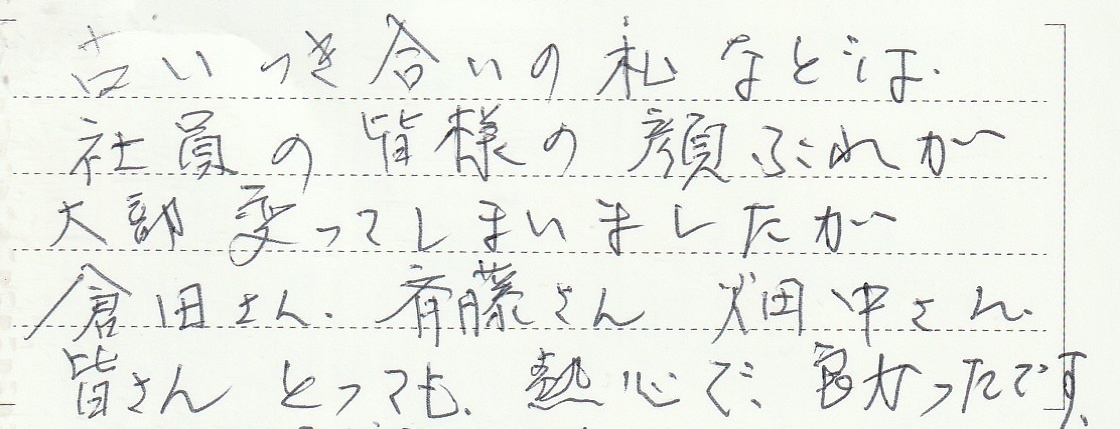 古いつき合いの私などは、
社員の皆様の顔ぶれが
大部変ってしまいましたが
倉田さん、斉藤さん 畑中さん、
皆さん とっても、熱心で、良かったです、